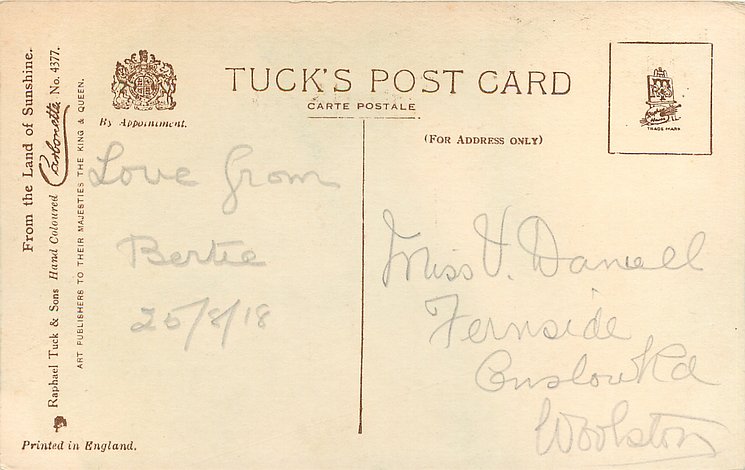 TUCK'S POST CARD
CARTE POSTALE
(FOR ADDRESS ONLY)
By Appointment.
TRADE MARK
From the Land of Sunshine.
Raphael Tuck & Sons Hand Coloured Carbonette No. 4377.
ART PUBLISHERS TO THEIR MAJESTIES THE KING & QUEEN.
Printed in England.
Love from
Bertie
25/8/18
Miss V. Daniell
Fernside
Onslow Rd
Woolston